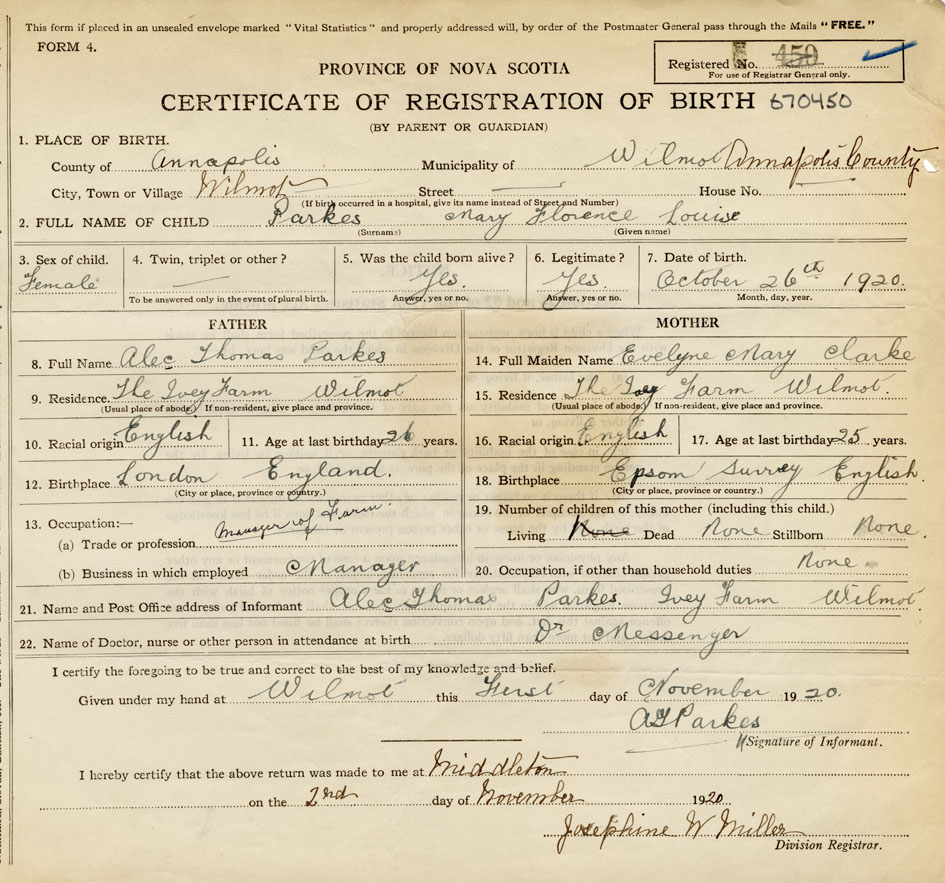 This form if placed in an unsealed envelope marked "Vital Statistics" and properly addressed will, by order of the Postmaster General pass through the Mails "FREE."
FORM 4.
Registered No. 450
For use of Registrar General only.
PROVINCE OF NOVA SCOTIA
CERTIFICATE OF REGISTRATION OF BIRTH 670450
(BY PARENT OR GUARDIAN)
1. PLACE OF BIRTH.
County of Annapolis Municipality of Wilmot Annapolis County
City, Town or Village Wilmot Street House No.
(If birth occurred in a hospital, give its name instead of Street and Number)
2. FULL NAME OF CHILD Parkes Mary Florence Louise
(Surname) (Given name)
3. Sex of child. 4. Twin, triplet or other? 5. Was the child born alive? 6. Legitimate? 7. Date of birth.
Female Yes. Yes. October 26th 1920.
To be answered only in the event of plural birth. Answer, yes or no. Answer, yes or no. Month, day, year.
FATHER MOTHER
8. Full Name Alec Thomas Parkes 14. Full Maiden Name Evelyne Mary Clarke
9. Residence. The Ivey Farm Wilmot 15. Residence The Ivey Farm Wilmot.
(Usual place of abode) If non-resident, give place and province. (Usual place of abode) If non-resident, give place and province.
10. Racial origin English 11. Age at last birthday 26 years. 16. Racial origin English 17. Age at last birthday 25 years.
12. Birthplace London England. 18. Birthplace Epsom Surrey English
(City or place, province or country.) (City or place, province or country.)
13. Occupation:— 19. Number of children of this mother (including this child.)
(a) Trade or profession Manager of Farm. Living None Dead None Stillborn None.
(b) Business in which employed Manager 20. Occupation, if other than household duties None
21. Name and Post Office address of Informant Alec Thomas Parkes. Ivey Farm Wilmot.
22. Name of Doctor, nurse or other person in attendance at birth Dr Messenger
I certify the foregoing to be true and correct to the best of my knowledge and belief.
Given under my hand at Wilmot this First day of November 1920.
A T Parkes
Signature of Informant.
I hereby certify that the above return was made to me at Middleton
on the 2nd day of November 1920
Josephine W Miller
Division Registrar.